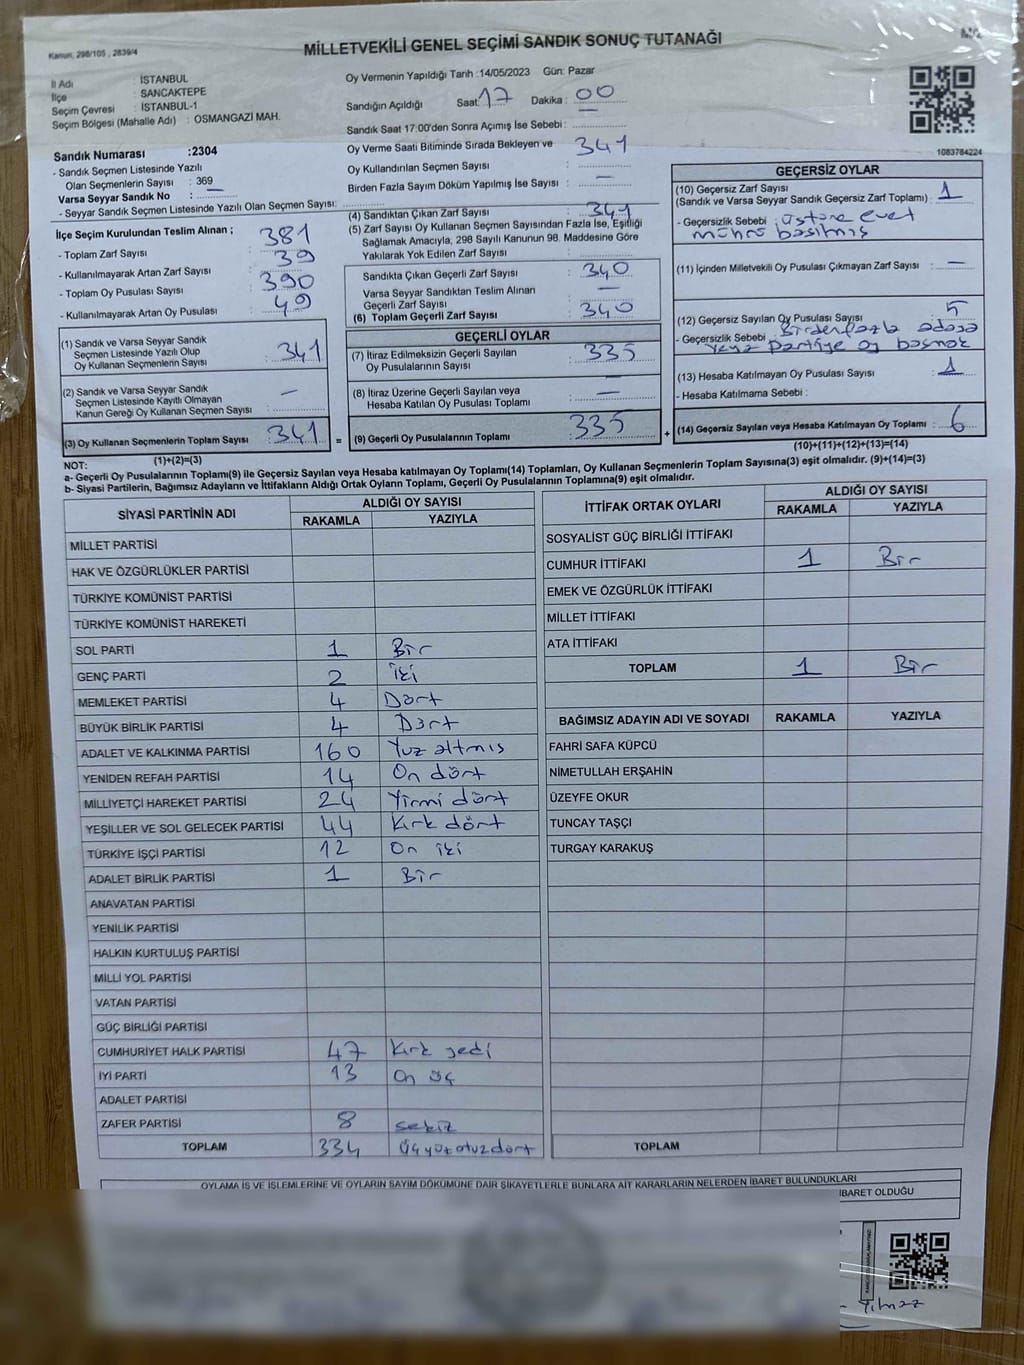 Kanun, 298/105 , 2839/4
MİLLETVEKİLİ GENEL SEÇİMİ SANDIK SONUÇ TUTANAĞI
İl Adı : İSTANBUL
İlçe : SANCAKTEPE
Seçim Çevresi : İSTANBUL-1
Seçim Bölgesi (Mahalle Adı) : OSMANGAZİ MAH.
Oy Vermenin Yapıldığı Tarih :14/05/2023 Gün: Pazar
Sandığın Açıldığı Saat: 17 Dakika : 00
Sandık Saat 17:00'den Sonra Açımış İse Sebebi :
Sandık Numarası :2304
- Sandık Seçmen Listesinde Yazılı
Olan Seçmenlerin Sayısı : 369
Varsa Seyyar Sandık No : —
- Seyyar Sandık Seçmen Listesinde Yazılı Olan Seçmen Sayısı:
Oy Verme Saati Bitiminde Sırada Bekleyen ve : 341
Oy Kullandırılan Seçmen Sayısı :
Birden Fazla Sayım Döküm Yapılmış İse Sayısı : —
1083784224
İlçe Seçim Kurulundan Teslim Alınan ;
- Toplam Zarf Sayısı : 381
- Kullanılmayarak Artan Zarf Sayısı : 39
- Toplam Oy Pusulası Sayısı : 390
- Kullanılmayarak Artan Oy Pusulası : 49
(1) Sandık ve Varsa Seyyar Sandık
Seçmen Listesinde Yazılı Olup
Oy Kullanan Seçmenlerin Sayısı : 341
(2) Sandık ve Varsa Seyyar Sandık
Seçmen Listesinde Kayıtlı Olmayan
Kanun Gereği Oy Kullanan Seçmen Sayısı : —
(3) Oy Kullanan Seçmenlerin Toplam Sayısı : 341 =
(1)+(2)=(3)
(4) Sandıktan Çıkan Zarf Sayısı : 341
(5) Zarf Sayısı Oy Kullanan Seçmen Sayısından Fazla İse, Eşitliği
Sağlamak Amacıyla, 298 Sayılı Kanunun 98. Maddesine Göre
Yakılarak Yok Edilen Zarf Sayısı :
Sandıkta Çıkan Geçerli Zarf Sayısı : 340
Varsa Seyyar Sandıktan Teslim Alınan
Geçerli Zarf Sayısı : —
(6) Toplam Geçerli Zarf Sayısı : 340
GEÇERLİ OYLAR
(7) İtiraz Edilmeksizin Geçerli Sayılan
Oy Pusulalarının Sayısı : 335
(8) İtiraz Üzerine Geçerli Sayılan veya
Hesaba Katılan Oy Pusulası Toplamı : —
(9) Geçerli Oy Pusulalarının Toplamı : 335 +
GEÇERSİZ OYLAR
(10) Geçersiz Zarf Sayısı
(Sandık ve Varsa Seyyar Sandık Geçersiz Zarf Toplamı) : 1
- Geçersizlik Sebebi : üstüne evet
mührü basılmış
(11) İçinden Milletvekili Oy Pusulası Çıkmayan Zarf Sayısı : —
(12) Geçersiz Sayılan Oy Pusulası Sayısı : 5
- Geçersizlik Sebebi : Birden fazla adaya
veya partiye oy basmak
(13) Hesaba Katılmayan Oy Pusulası Sayısı : 1
- Hesaba Katılmama Sebebi :
(14) Geçersiz Sayılan veya Hesaba Katılmayan Oy Toplamı : 6
(10)+(11)+(12)+(13)=(14)
NOT:
a- Geçerli Oy Pusulalarının Toplamı(9) ile Geçersiz Sayılan veya Hesaba katılmayan Oy Toplamı(14) Toplamları, Oy Kullanan Seçmenlerin Toplam Sayısına(3) eşit olmalıdır. (9)+(14)=(3)
b- Siyasi Partilerin, Bağımsız Adayların ve İttifakların Aldığı Ortak Oyların Toplamı, Geçerli Oy Pusulalarının Toplamına(9) eşit olmalıdır.
SİYASİ PARTİNİN ADI ALDIĞI OY SAYISI
RAKAMLA YAZIYLA
MİLLET PARTİSİ
HAK VE ÖZGÜRLÜKLER PARTİSİ
TÜRKİYE KOMÜNİST PARTİSİ
TÜRKİYE KOMÜNİST HAREKETİ
SOL PARTİ 1 Bir
GENÇ PARTİ 2 iki
MEMLEKET PARTİSİ 4 Dört
BÜYÜK BİRLİK PARTİSİ 4 Dört
ADALET VE KALKINMA PARTİSİ 160 Yuz altmıs
YENİDEN REFAH PARTİSİ 14 On dört
MİLLİYETÇİ HAREKET PARTİSİ 24 Yirmi dört
YEŞİLLER VE SOL GELECEK PARTİSİ 44 Kırk dört
TÜRKİYE İŞÇİ PARTİSİ 12 On iki
ADALET BİRLİK PARTİSİ 1 Bir
ANAVATAN PARTİSİ
YENİLİK PARTİSİ
HALKIN KURTULUŞ PARTİSİ
MİLLİ YOL PARTİSİ
VATAN PARTİSİ
GÜÇ BİRLİĞİ PARTİSİ
CUMHURİYET HALK PARTİSİ 47 Kırk yedi
İYİ PARTİ 13 On üç
ADALET PARTİSİ
ZAFER PARTİSİ 8 sekiz
TOPLAM 334 üçyüzotuzdört
İTTİFAK ORTAK OYLARI ALDIĞI OY SAYISI
RAKAMLA YAZIYLA
SOSYALİST GÜÇ BİRLİĞİ İTTİFAKI
CUMHUR İTTİFAKI 1 Bir
EMEK VE ÖZGÜRLÜK İTTİFAKI
MİLLET İTTİFAKI
ATA İTTİFAKI
TOPLAM 1 Bir
BAĞIMSIZ ADAYIN ADI VE SOYADI RAKAMLA YAZIYLA
FAHRİ SAFA KÜPCÜ
NİMETULLAH ERŞAHİN
ÜZEYFE OKUR
TUNCAY TAŞÇI
TURGAY KARAKUŞ
TOPLAM
OYLAMA İŞ VE İŞLEMLERİNE VE OYLARIN SAYIM DÖKÜMÜNE DAİR ŞİKAYETLERLE BUNLARA AİT KARARLARIN NELERDEN İBARET BULUNDUKLARI
İBARET OLDUĞU
Yılmaz